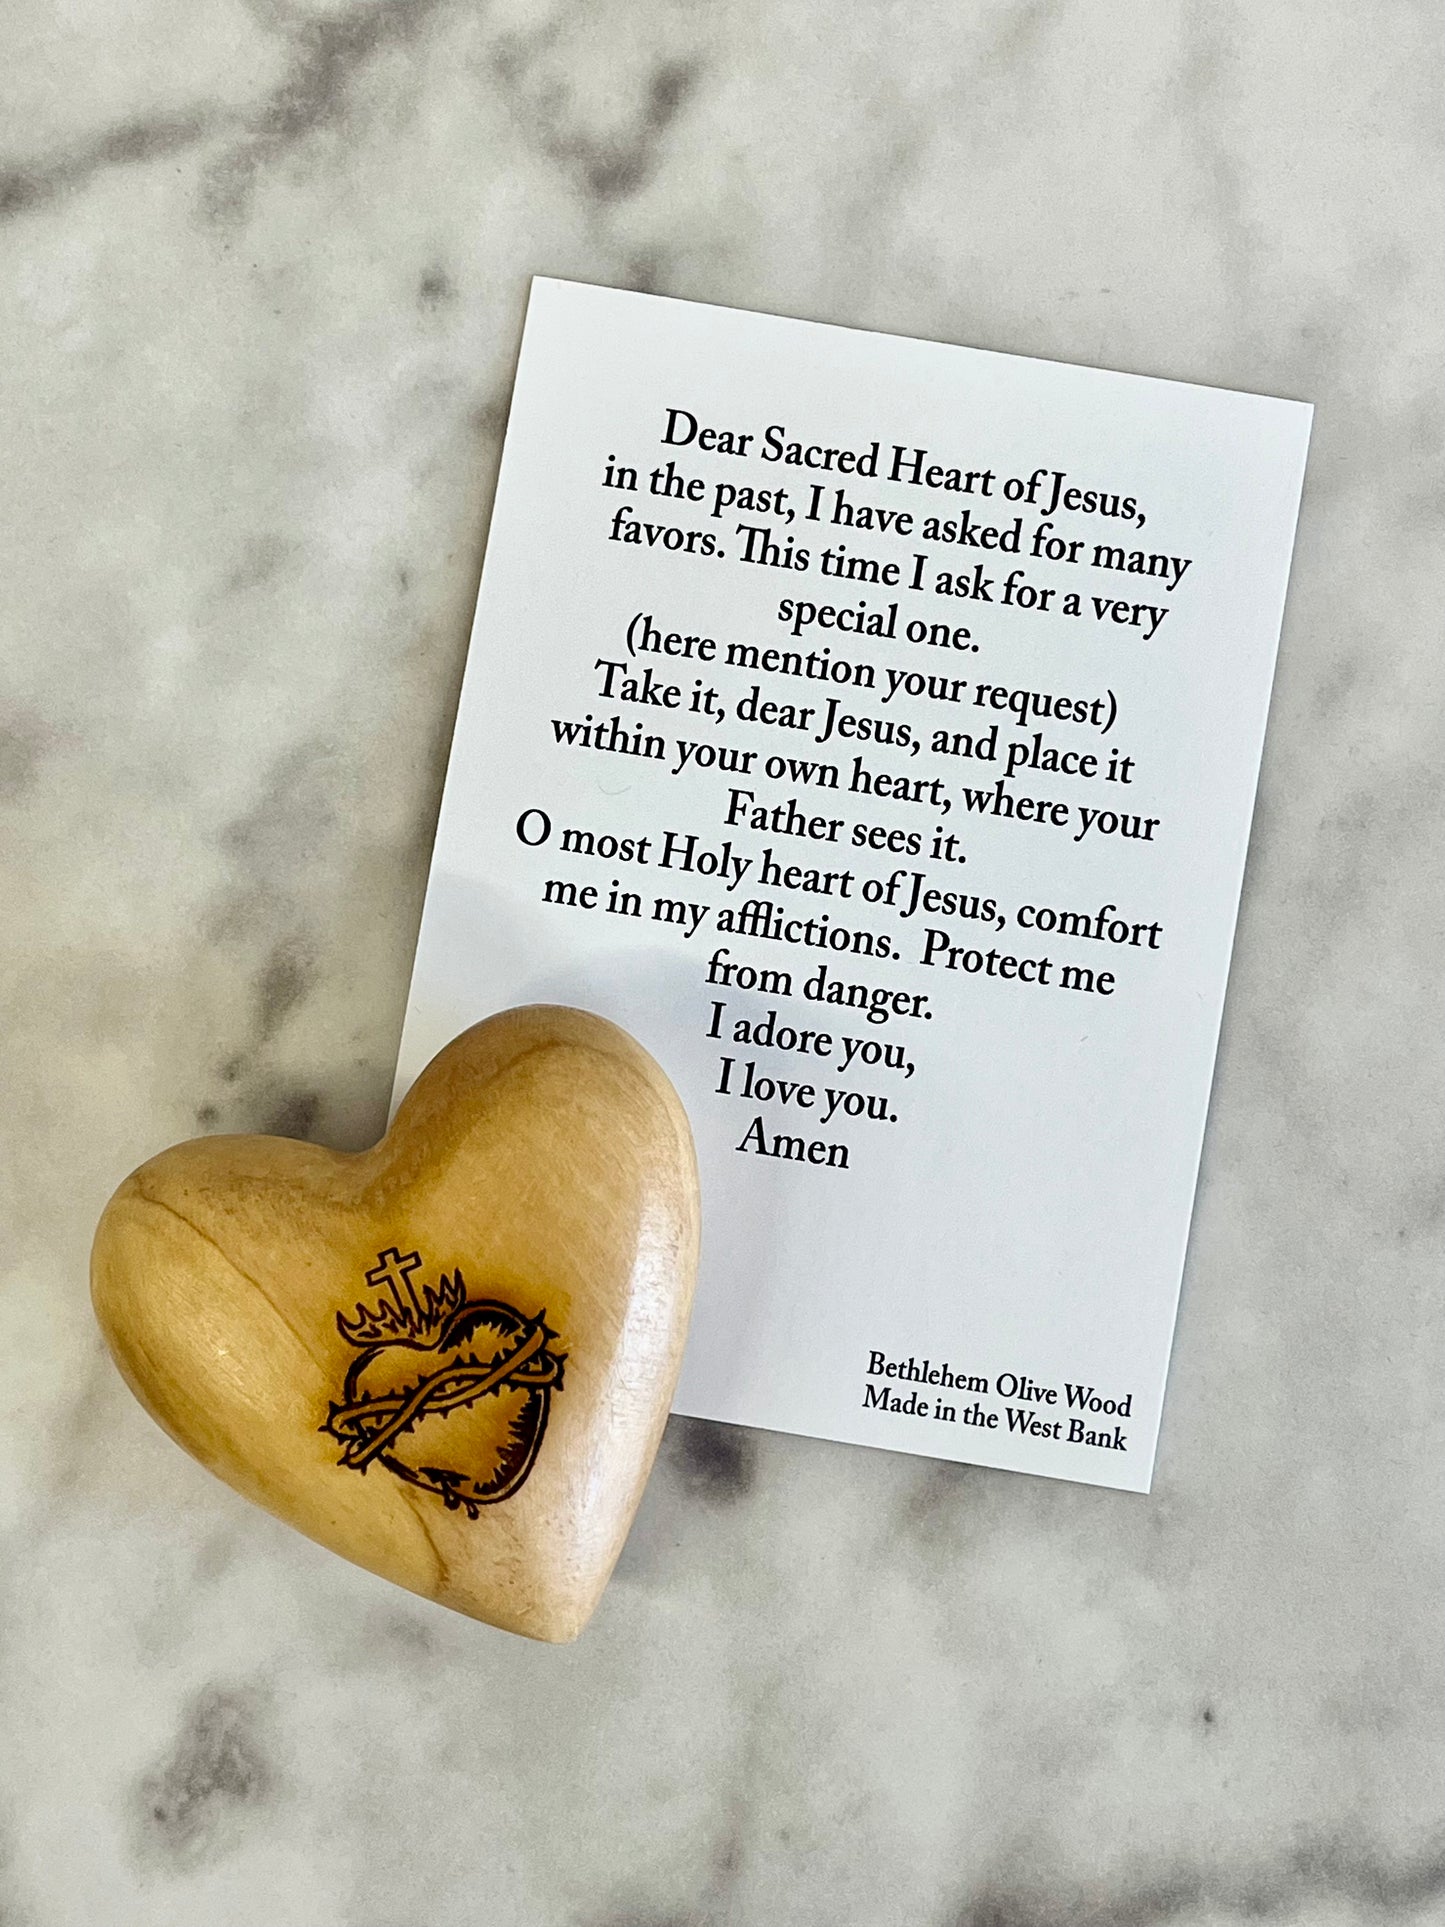 Dear Sacred Heart of Jesus,
in the past, I have asked for many
favors. This time I ask for a very
special one.
(here mention your request)
Take it, dear Jesus, and place it
within your own heart, where your
Father sees it.
O most Holy heart of Jesus, comfort
me in my afflictions. Protect me
from danger.
I adore you,
I love you.
Amen
Bethlehem Olive Wood
Made in the West Bank